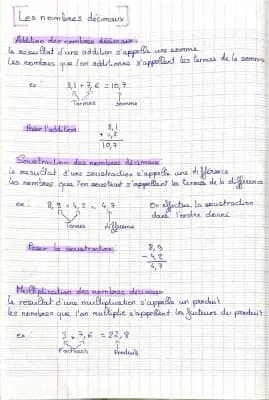 Les nombres décimaux
Addition des nombres décimaux
Le resultat d'une addition s'appelle une somme
Les nombres que l'on additionne s'appellent les termes de la somme
ex : 3,1 + 7,6 = 10,7
Termes somme
Poser l'addition
3,1
+ 7,6
10,7
Soustraction des nombres décimaux
Le resultat d'une soustraction s'appelle une différence
Les nombres que l'on soustrait s'appellent les termes de la différence
ex : 8,9 - 4,2 = 4,7
Termes différence
On effectue la soustraction
dans l'ordre donné
Poser la soustraction
8,9
- 4,2
4,7
Multiplication des nombres décimaux
Le résultat d'une multiplication s'appelle un produit
Les nombres que l'on multiplie s'appellent les facteurs du produit
ex : 3 × 7,6 = 22,8
Facteurs Produit